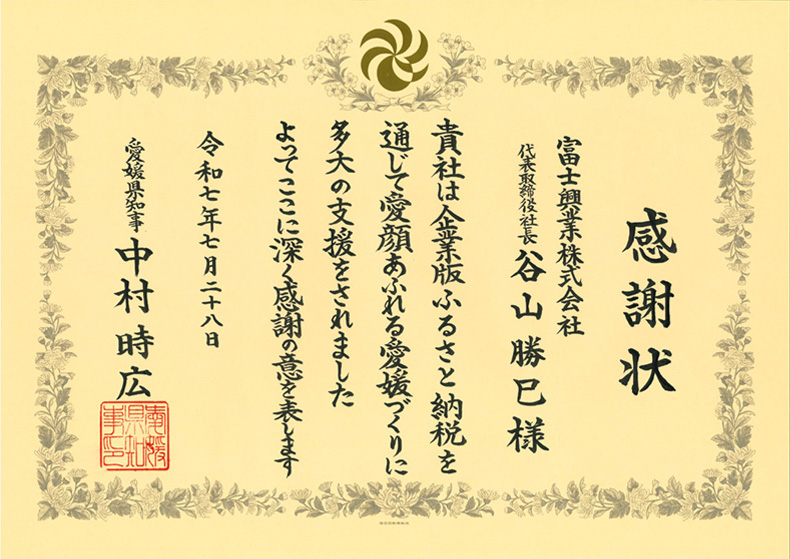 感謝状
富士興業株式会社
代表取締役社長 谷山勝巳様
貴社は企業版ふるさと納税を
通じて愛顔あふれる愛媛づくりに
多大の支援をされました
よってここに深く感謝の意を表します
令和七年七月二十八日
愛媛県知事 中村時広
愛媛
県知
事印